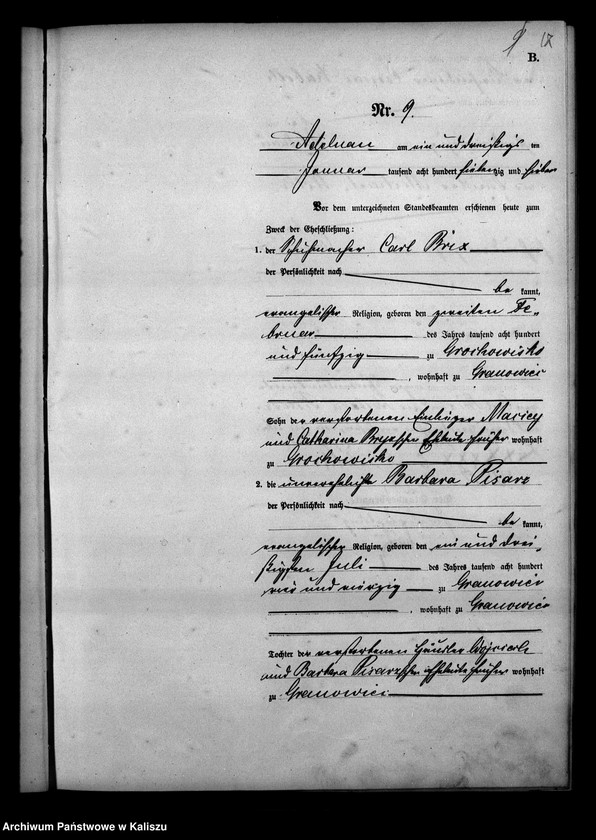 9 12
B.
Nr. 9.
Adelnau am ein und dreißigs ten
Januar tausend acht hundert siebenzig und sieben
Vor dem unterzeichneten Standesbeamten erschienen heute zum
Zweck der Eheschließung:
1. der Schuhmacher Carl Brix
der Persönlichkeit nach
be kannt,
evangelischer Religion, geboren den zweiten Fe-
bruar des Jahres tausend acht hundert
und fünfzig zu Grochowisko
, wohnhaft zu Granowiec
Sohn der verstorbenen Einlieger Maciej
und Catharina Eheleute früher wohnhaft
zu Grochowisko
2. die unverehelichte Barbara Pisarz
der Persönlichkeit nach
be kannt,
evangelischer Religion, geboren den ein und drei-
ßigsten Juli des Jahres tausend acht hundert
vier und vierzig zu Granowiec
, wohnhaft zu Granowiec
Tochter der verstorbenen Häusler
und Barbara Pisarzschen Eheleute früher wohnhaft
zu Granowiec
Archiwum Państwowe w Kaliszu